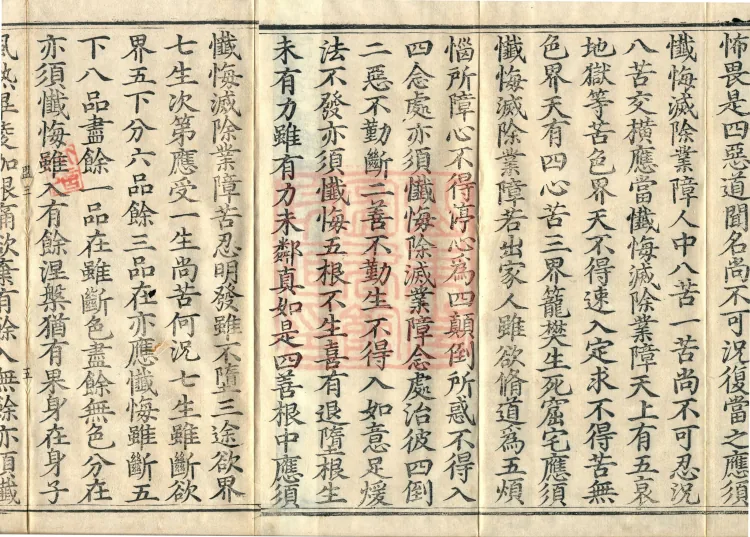 怖畏是四惡道聞名尚不可況復當之應須
懺悔滅除業障人中八苦一苦尚不可忍況
八苦交橫應當懺悔滅除業障天上有五衰
地獄等苦色界天不得速入定求不得苦無
色界天有四心苦三界籠樊生死窟宅應須
懺悔滅除業障若出家人雖欲脩道為五煩
惱所障心不得停心為四顛倒所惑不得入
四念處亦須懺悔除滅業障念處治彼四倒
二惡不勤斷二善不勤生不得入如意足煖
法不發亦須懺悔五根不生喜有退墮根生
未有力雖有力未鄰真如是四善根中應須
懺悔滅除業障苦忍明發雖不墮三途欲界
七生次第應受一生尚苦何況七生雖斷欲
界五下分六品餘三品在亦應懺悔雖斷五
下八品盡餘一品在雖斷色盡餘無色分在
亦須懺悔雖入有餘涅槃猶有果身在身子
五
風熱畢陵加眼痛欲棄有餘入無餘亦須懺